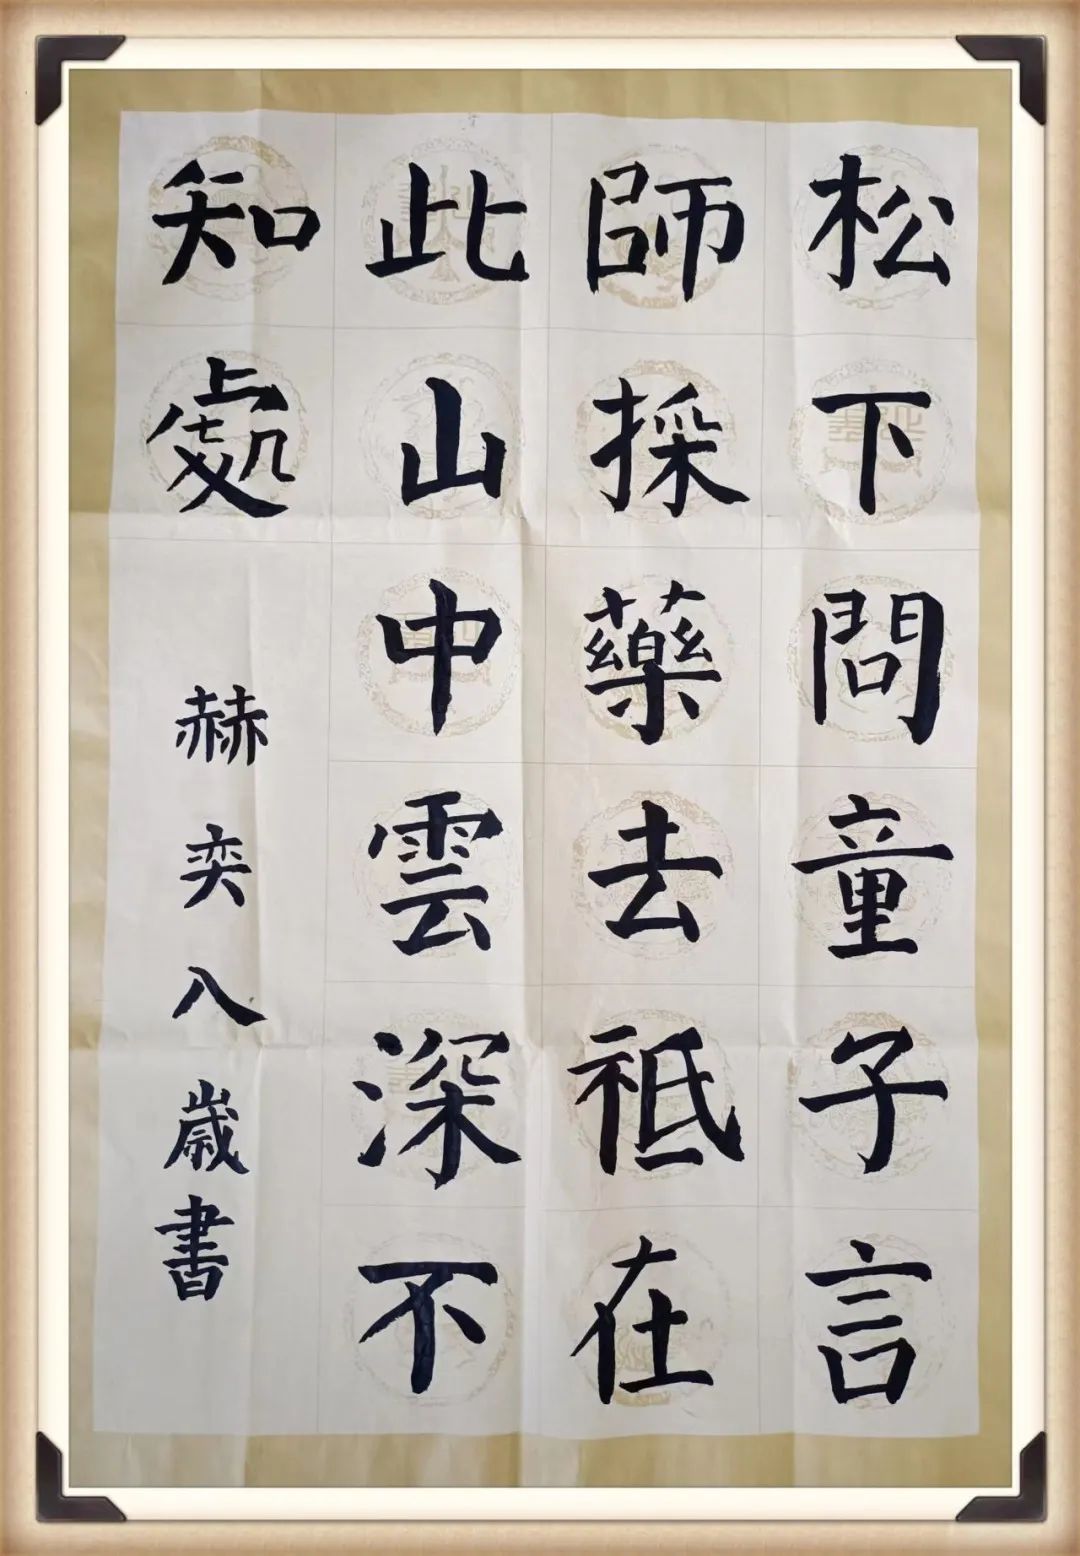 松下問童子言
師採藥去祗在
此山中雲深不
知處
赫奕八歲書